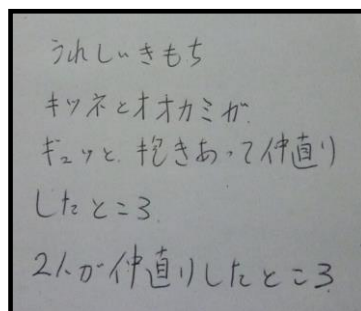 うれしいきもち
キツネとオオカミが
ギュッと抱きあって仲直り
したところ
2人が仲直りしたところ